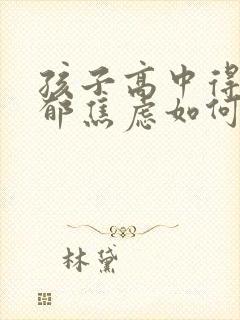 孩子高中得
郁焦虑如何
林黛